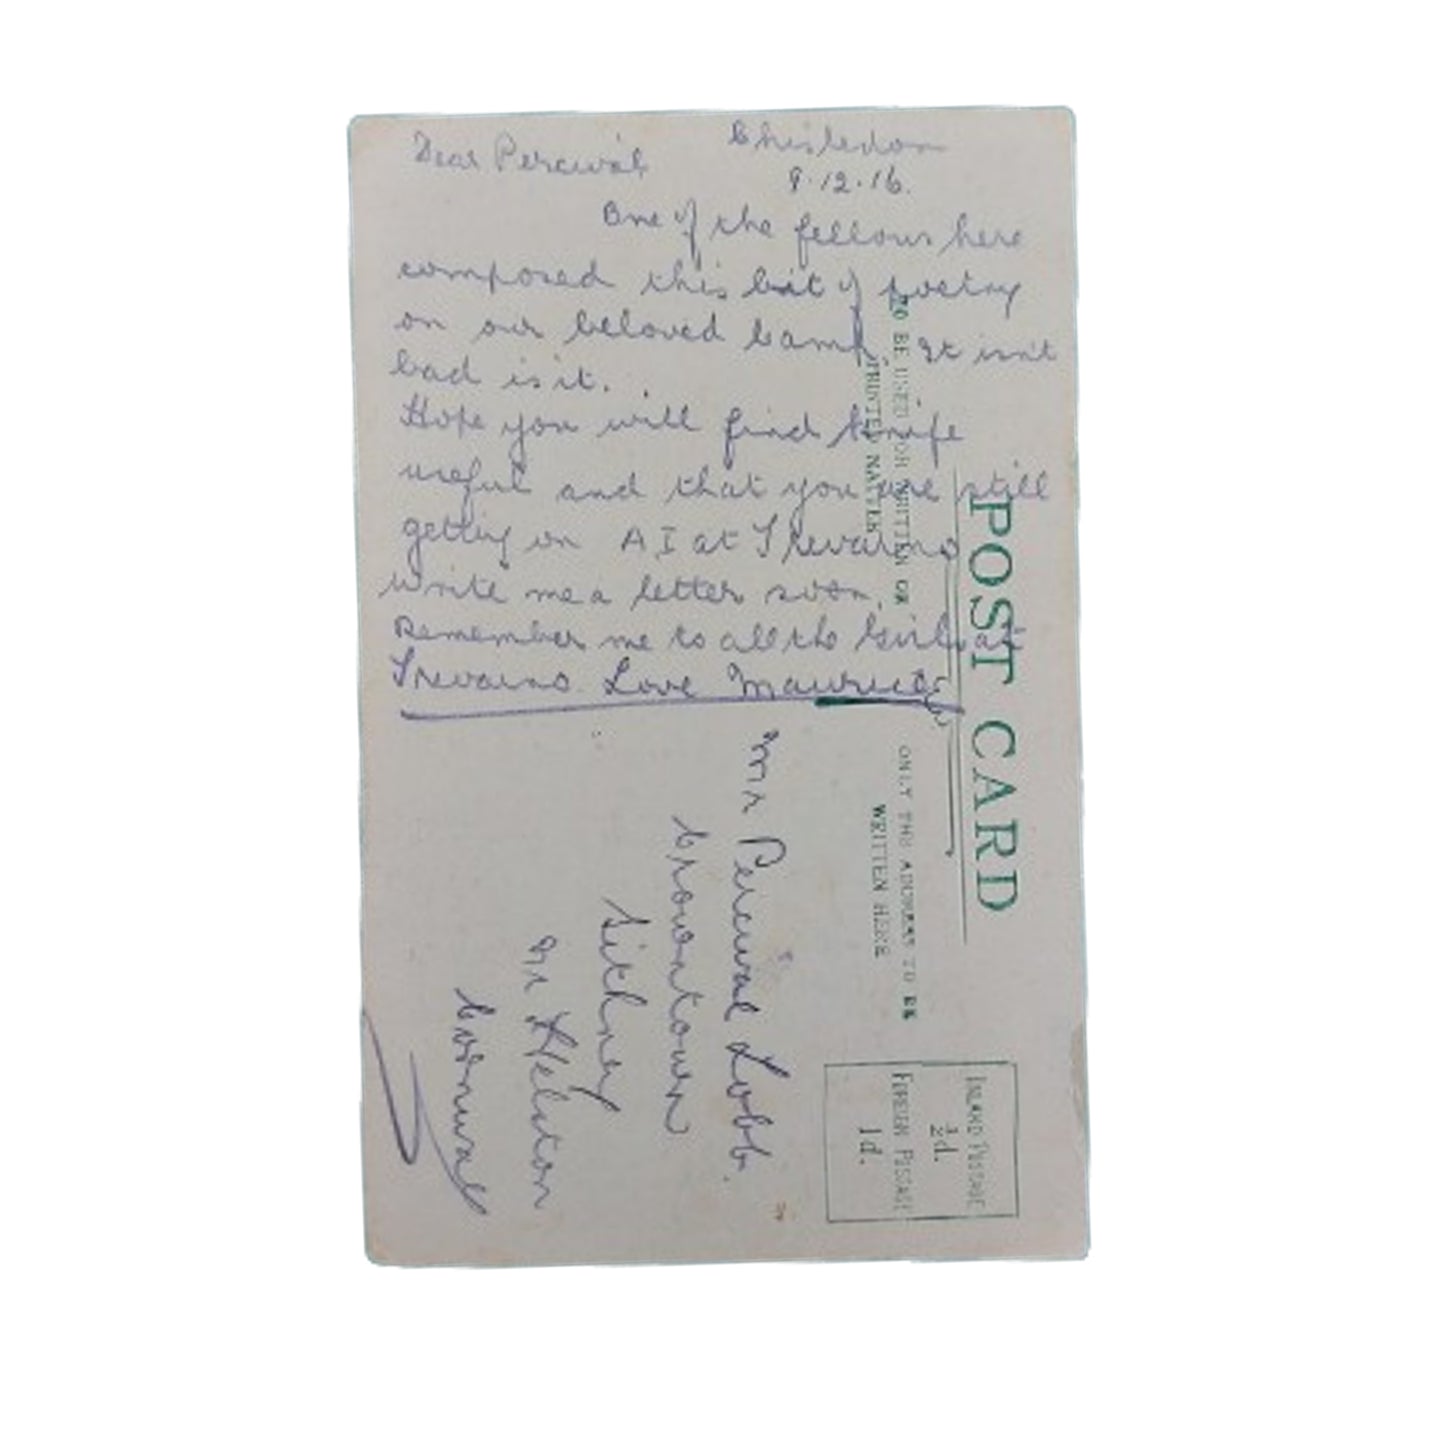 Dear Percival
Chisledon
9.12.16.
One of the fellows here
composed this bit of poetry
on our beloved Camp. It isn't
bad is it.
Hope you will find knife
useful and that you are still
getting on A I at Trevarno
write me a letter soon.
Remember me to all the Girls at
Trevarno. Love Maurice
POST CARD
TO BE USED FOR WRITTEN OR
PRINTED MATTER
ONLY THE ADDRESS TO BE
WRITTEN HERE
INLAND POSTAGE
½d.
FOREIGN POSTAGE
1d.
Mr Percival Lobb.
Crowntown
Sithney
Nr Helston
Cornwall